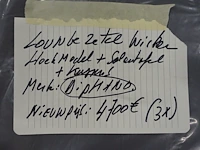 Lounge Zetel Wicker
Hoek Model + Salontafel
+ kussens
Merk: DIPHANO
Nieuwprijs: 4700€ (3x)